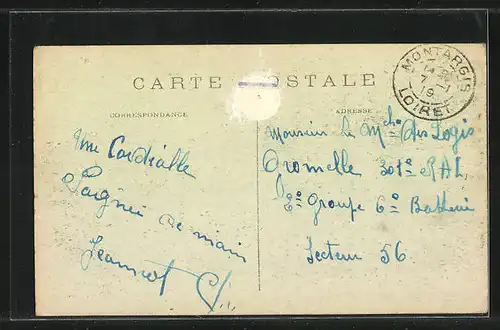 CARTE POSTALE
CORRESPONDANCE
ADRESSE
MONTARGIS
7 -1
19
LOIRET
Une Cordialle
Poignée de main
Jeannot
Monsieur le Mchal des Logis
Gromelle 301e RAL
2eme Groupe 6e Batterie
Secteur 56